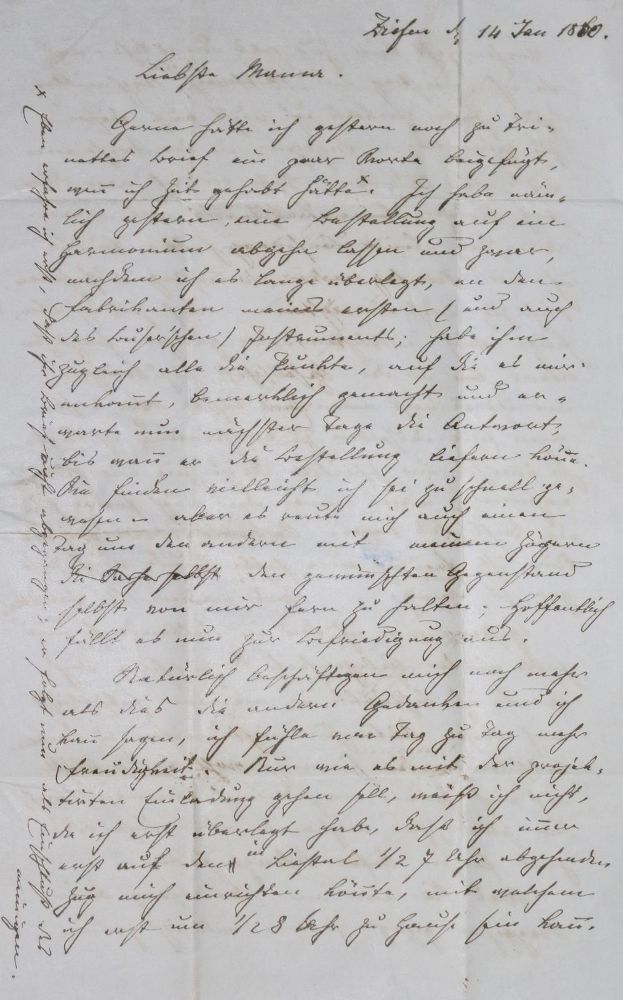 Ziefen d. 14 Jan 1860.
Liebste Mamma.
Gerne hätte ich gestern noch zu Tri-
nettes Brief ein paar Worte beigefügt,
wenn ich Zeit gehabt hätte x. Ich habe näm-
lich gestern, eine Bestellung auf ein
Harmonium abgehn lassen und zwar,
nachdem ich es lange überlegt, an den
Fabrikanten meines ersten (und auch
des Buser'schen) Instruments; habe ihm
zugleich alle die Punkte, auf die es mir
ankommt, bemerklich gemacht und er-
warte nun nächster Tage die Antwort,
bis wann er die Bestellung liefern könne.
Sie finden vielleicht ich sei zu schnell ge-
wesen – aber es reute mich auch einen
Tag um den andern mit meinem Zögern
die Sache selbst den gewünschten Gegenstand
selbst von mir fern zu halten; hoffentlich
fällt es nun zur Befriedigung aus.
Natürlich beschäftigen mich noch mehr
als dies die andern Gedanken und ich
kann sagen, ich fühle von Tag zu Tag mehr
Freudigkeit. Nur wie es mit der projek-
tirten Einladung gehen soll, weiß ich nicht,
da ich erst überlegt habe, daß ich immer
erst auf den in Liestal 1/2 7 Uhr abgehenden
Zug mich einrichten könnte, mit welchem
ich erst um 1/2 8 Uhr zu Hause sein kann.
x Eben erfahre ich erst, daß ihr Brief nicht abgegangen; er folgt nun als Einschluß des
meinigen.